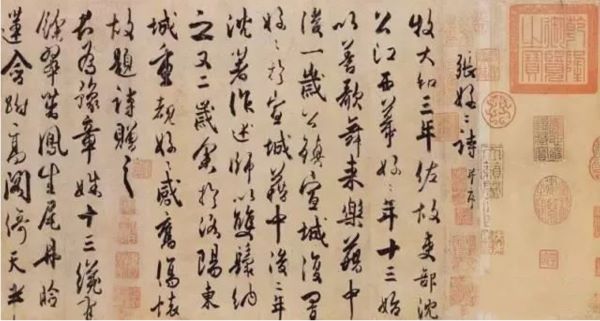 乾隆御覽之寶
張好〻詩 并序
牧大和三年佐故吏部沈
公江西幕好〻年十三始
以善歌舞來樂籍中
後一歲公鎮宣城復置
好〻於宣城籍中後二年
沈著作述師以雙鬟納
之又二歲余於洛陽東
城重覩好〻感舊傷懷
故題詩贈之
君為豫章姝十三纔有
餘翠茁鳳生尾丹臉
蓮含跗高閣倚天半